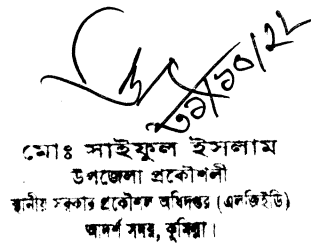 ৩১/১০/২২
মোঃ সাইফুল ইসলাম
উপজেলা প্রকৌশলী
স্থানীয় সরকার প্রকৌশল অধিদপ্তর (এলজিইডি)
আদর্শ সদর, কুমিল্লা।